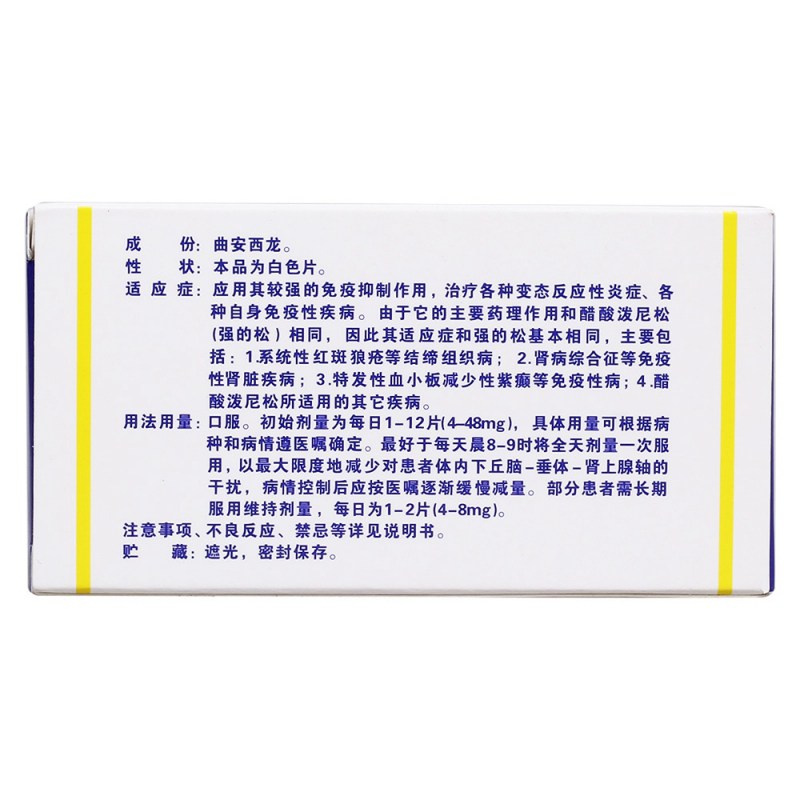 成 份：曲安西龙。
性 状：本品为白色片。
适应症：应用其较强的免疫抑制作用，治疗各种变态反应性炎症、各
种自身免疫性疾病。由于它的主要药理作用和醋酸泼尼松
(强的松)相同，因此其适应症和强的松基本相同，主要包
括：1.系统性红斑狼疮等结缔组织病；2.肾病综合征等免疫
性肾脏疾病；3.特发性血小板减少性紫癜等免疫性病；4.醋
酸泼尼松所适用的其它疾病。
用法用量：口服。初始剂量为每日1-12片(4-48mg)，具体用量可根据病
种和病情遵医嘱确定。最好于每天晨8-9时将全天剂量一次服
用，以最大限度地减少对患者体内下丘脑-垂体-肾上腺轴的
干扰，病情控制后应按医嘱逐渐缓慢减量。部分患者需长期
服用维持剂量，每日为1-2片(4-8mg)。
注意事项、不良反应、禁忌等详见说明书。
贮 藏：遮光，密封保存。